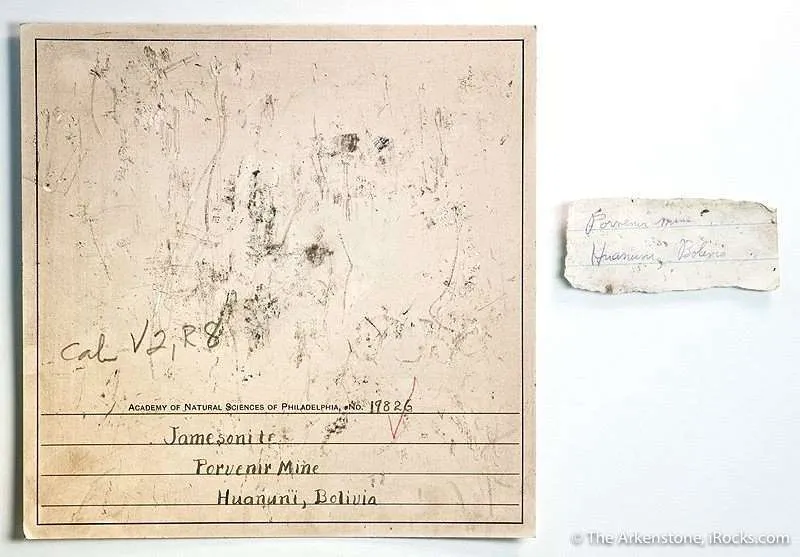 Cab V2, R8
ACADEMY OF NATURAL SCIENCES OF PHILADELPHIA, NO. 19826
Jamesonite
Porvenir Mine
Huanuni, Bolivia
Porvenir mine
Huanuni, Bolivia
© The Arkenstone, iRocks.com